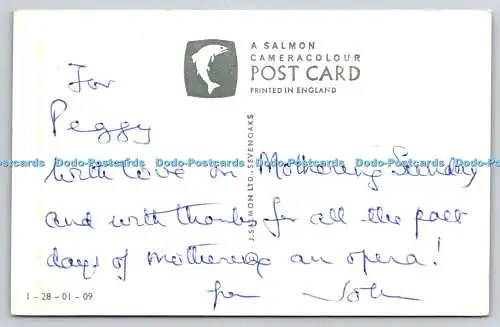 A SALMON
CAMERACOLOUR
POST CARD
PRINTED IN ENGLAND
For
Peggy
Dodo-Postcards Dodo-Postcards Dodo-Postcards Dodo-Postcards Dodo-Postcards
with love on Mothering Sunday
and with thanks for all the past
days of mothering an opera!
from John
J. SALMON LTD., SEVENOAKS
1-28-01-09